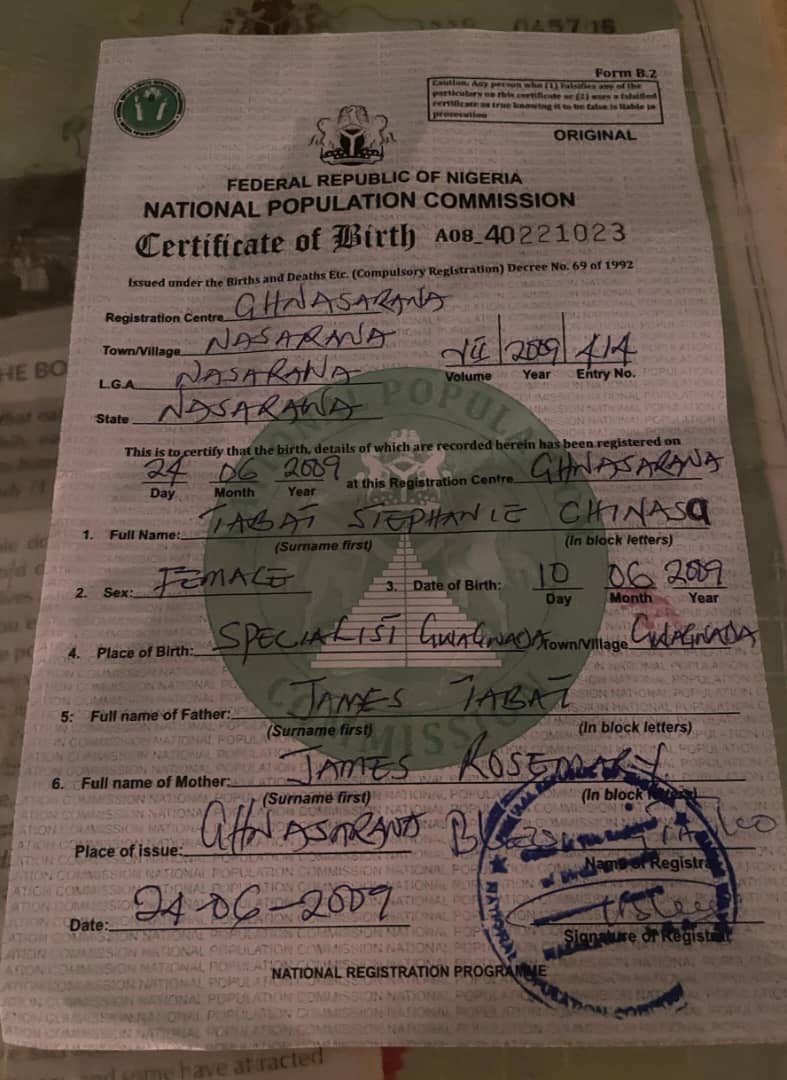 Form B.2
Caution. Any person who (1) falsifies any of the
particulars on this certificate or (2) uses a falsified
certificate as true knowing it to be false is liable to
prosecution
ORIGINAL
FEDERAL REPUBLIC OF NIGERIA
NATIONAL POPULATION COMMISSION
Certificate of Birth A08_40221023
Issued under the Births and Deaths Etc. (Compulsory Registration) Decree No. 69 of 1992
Registration Centre GHNASARAWA
Town/Village NASARAWA
L.G.A NASARAWA
VII 2009 414
Volume Year Entry No.
State NASARAWA
This is to certify that the birth, details of which are recorded herein has been registered on
24 06 2009 at this Registration Centre GHNASARAWA
Day Month Year
1. Full Name: TABAT STEPHANIE CHINASA
(Surname first) (In block letters)
2. Sex: FEMALE 3. Date of Birth: 10 06 2009
Day Month Year
4. Place of Birth: SPECIALIST GWAGWADA Town/Village GWAGWADA
5: Full name of Father: JAMES TABAT
(Surname first) (In block letters)
6. Full name of Mother: JAMES ROSEMARY
(Surname first) (In block letters)
Place of issue: GHNASARAWA Blessing
Name of Registrar
Date: 24-06-2009
Signature of Registrar
NATIONAL REGISTRATION PROGRAMME
HE BO
and some have attracted